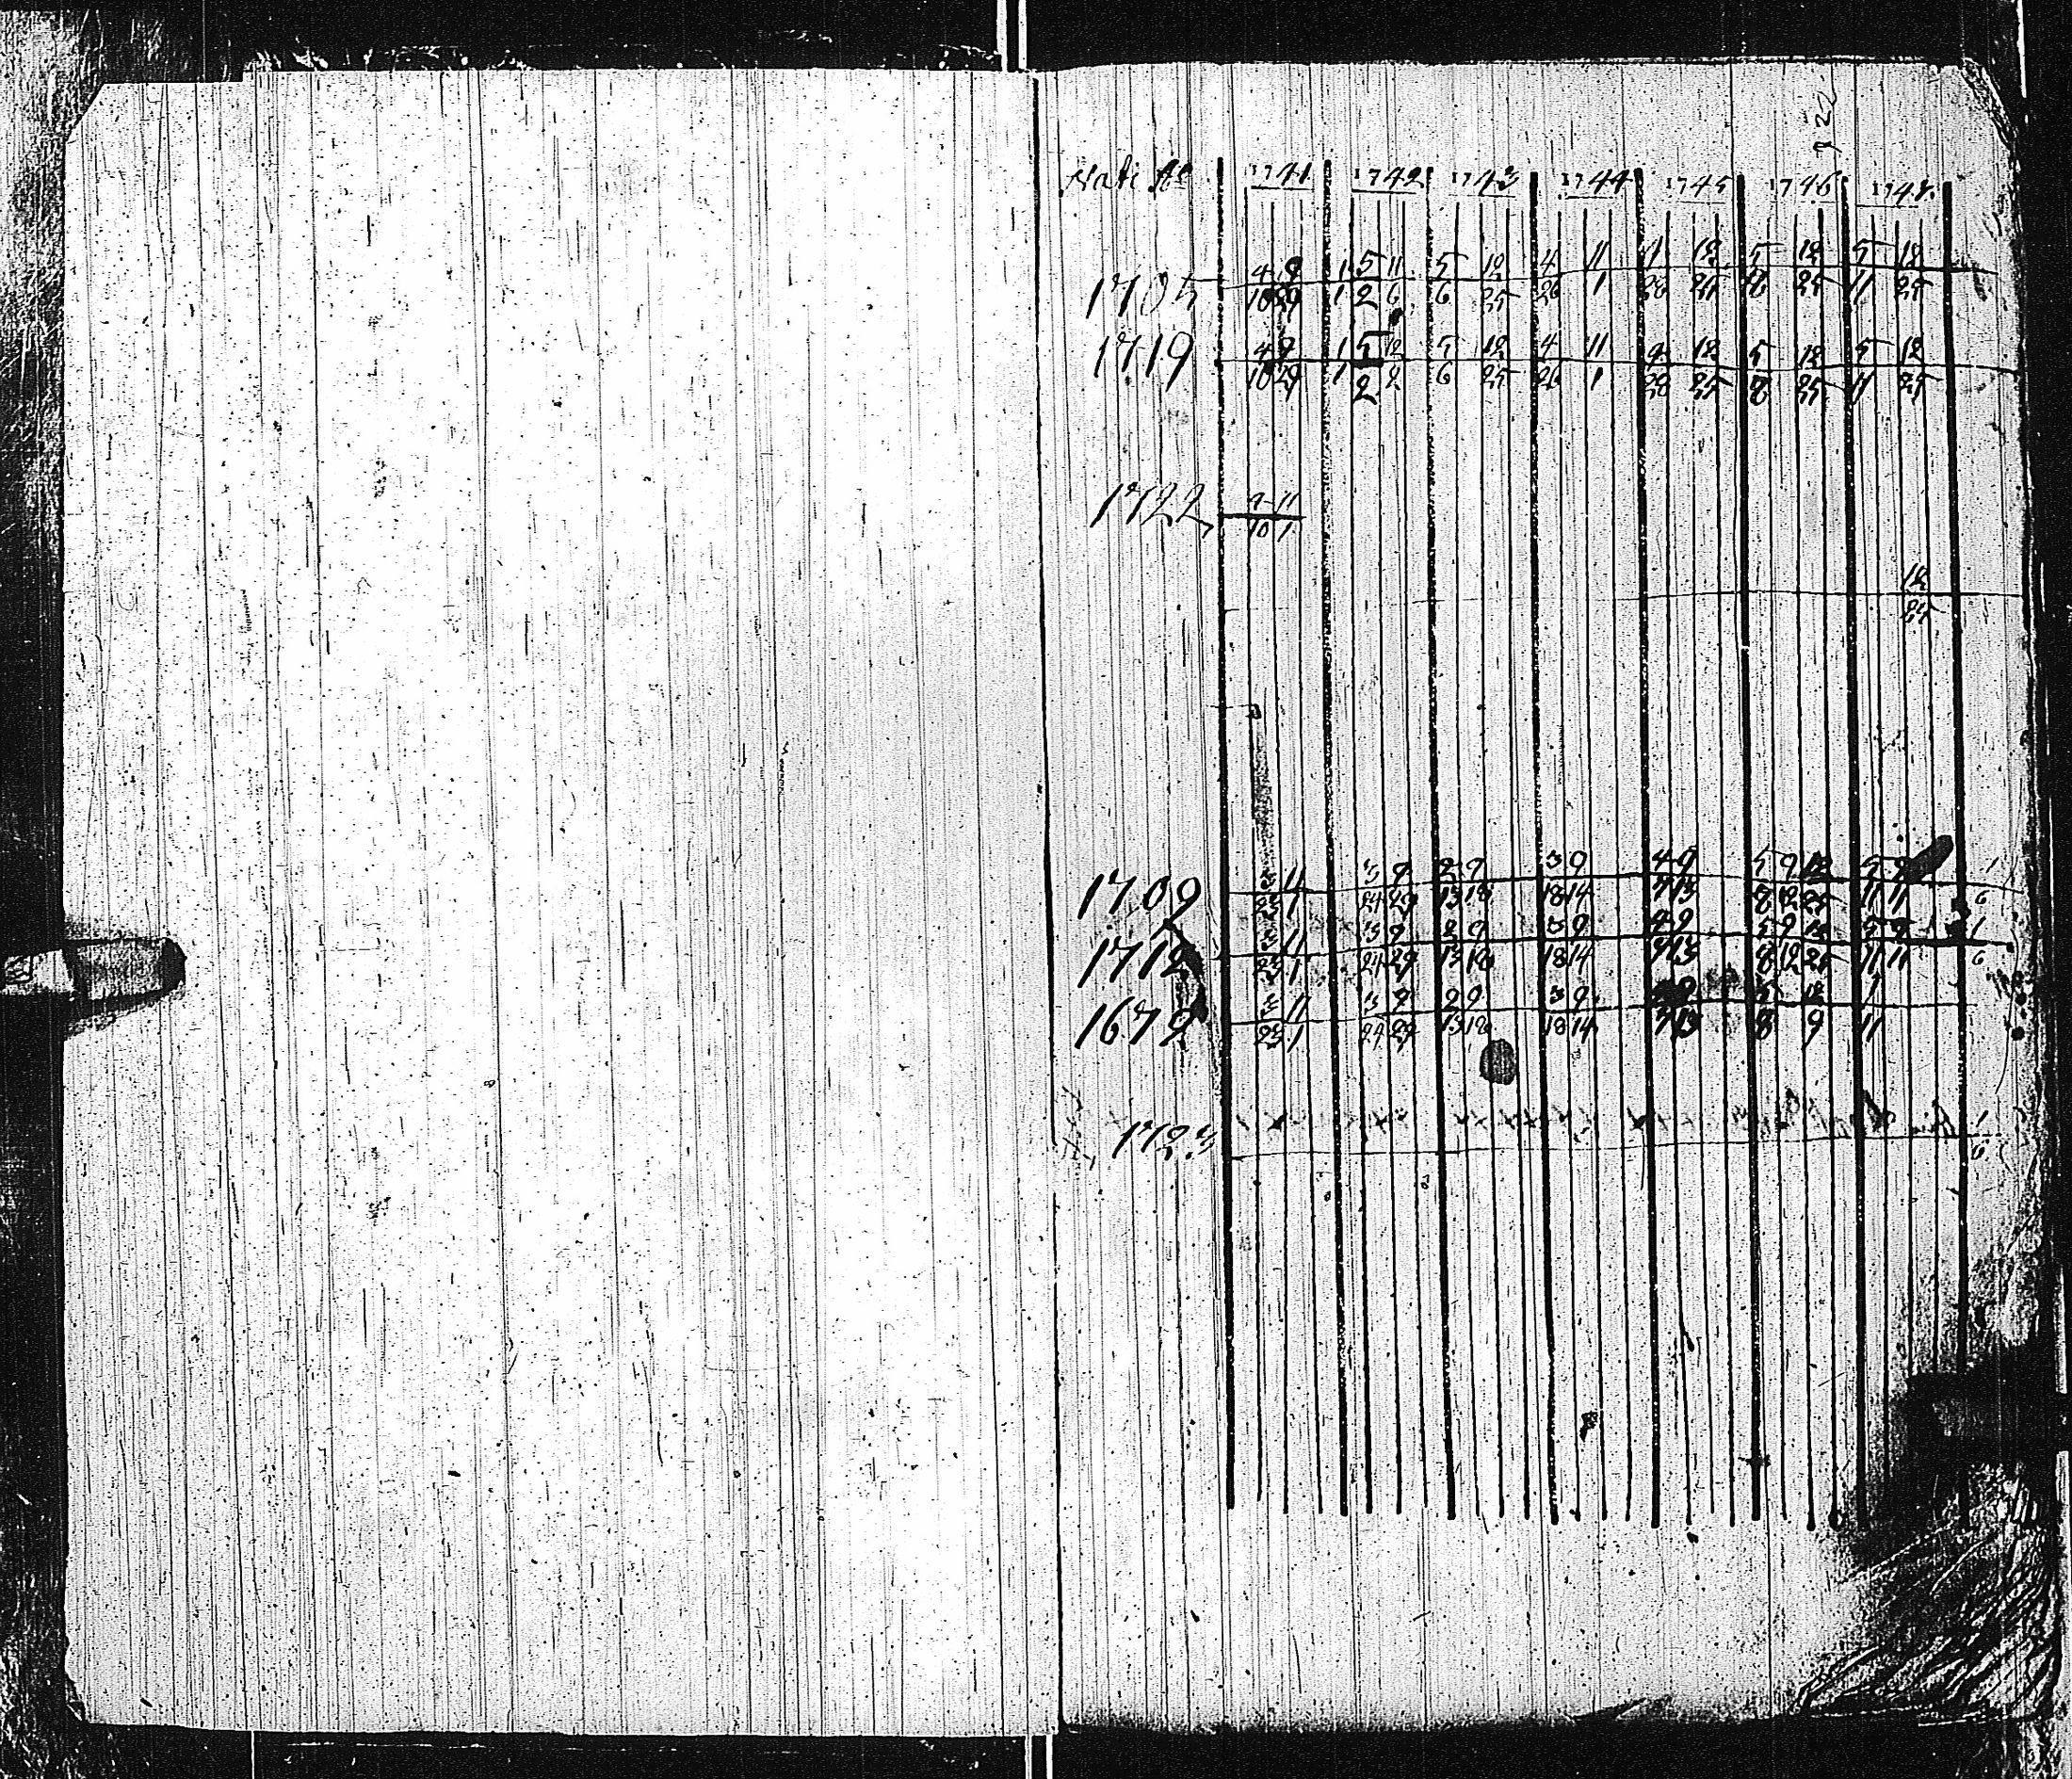 Nati Ao 1741 1742 1743 1744 1745 1746 1747
4 9 1 5 11 5 12 4 11 4 12 5 12 5 12
1705 10 29 1 2 6 6 25 26 1 28 25 8 25 11 25
4 9 1 5 12 5 12 4 11 4 12 5 12 5 12
1719 10 29 1 2 2 6 25 26 1 28 25 8 25 11 25
11
1722 10 1
12
25
3 11 3 9 2 9 3 9 4 9 5 9 12 5 9 1
1709 23 1 24 29 13 18 18 14 7 13 8 12 25 11 11 6
3 11 3 9 2 9 3 9 4 9 5 9 12 5 9 1
1712 23 1 24 29 13 18 18 14 7 13 8 12 25 11 11 6
3 11 3 9 2 9 3 9 9 5 12
1679 23 1 24 29 13 18 18 14 7 13 8 9 11
1
1723 6